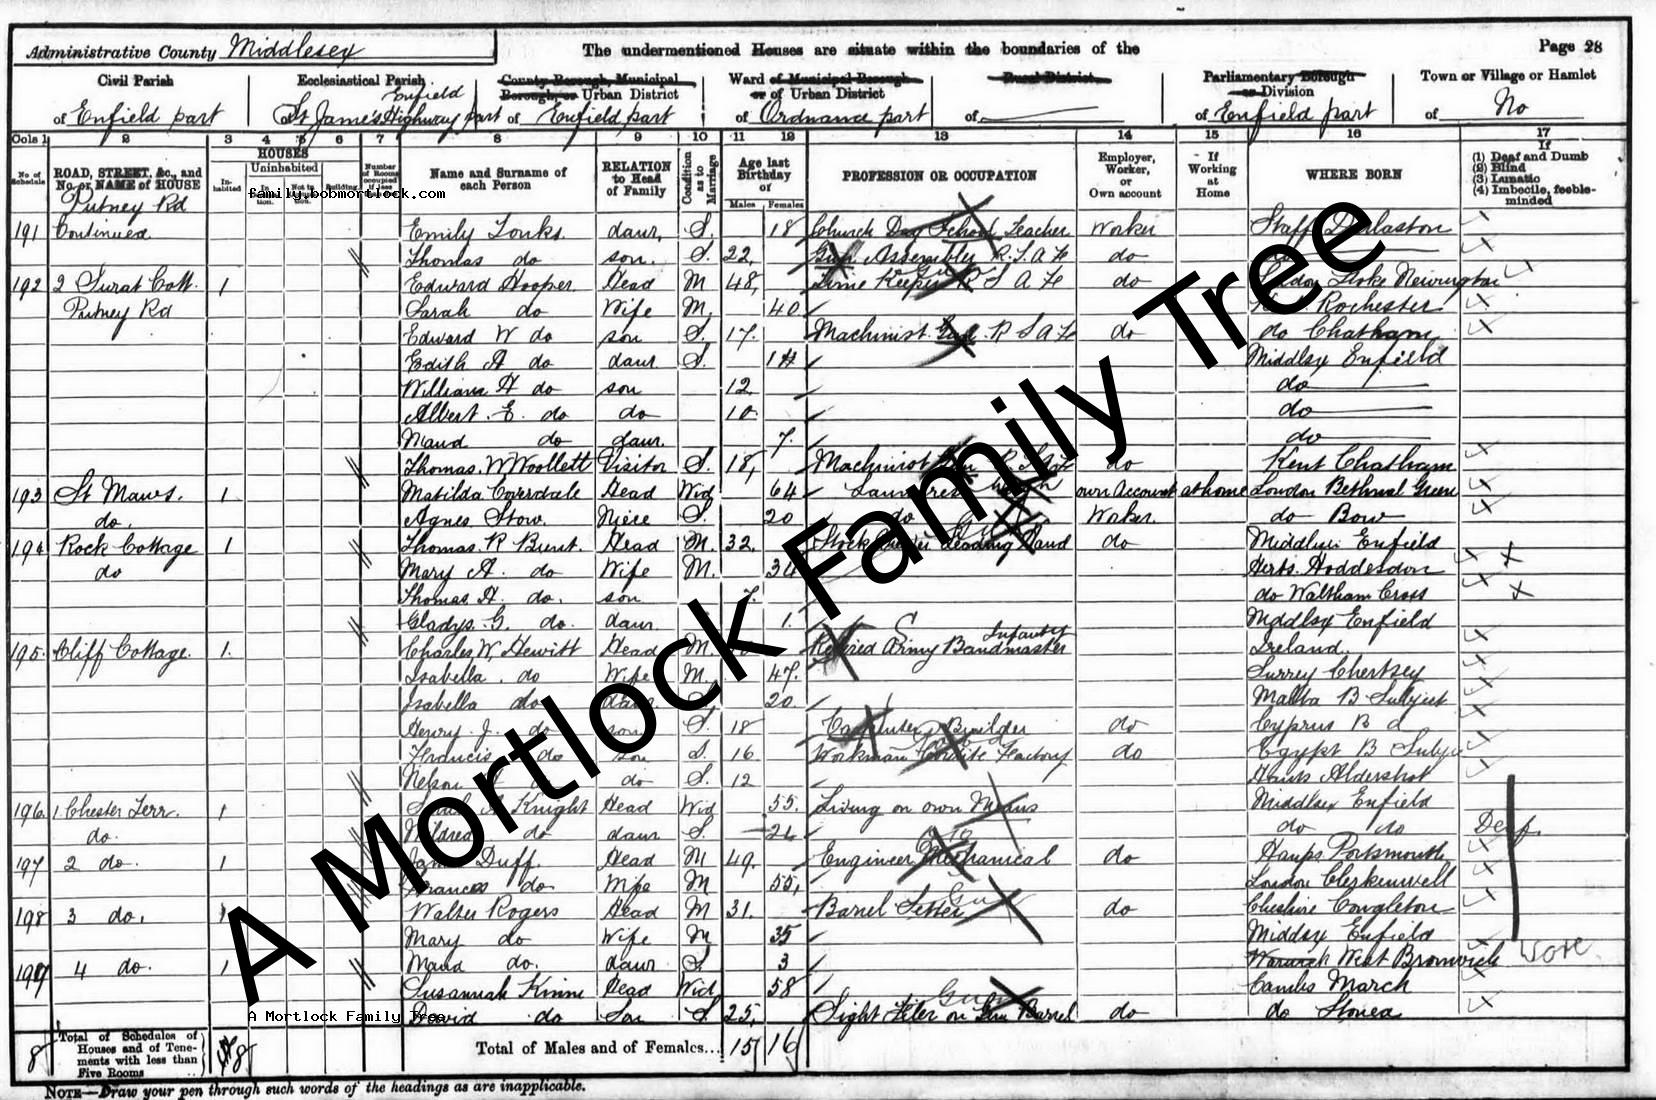 Administrative County Middlesex
The undermentioned Houses are situate within the boundaries of the
Page 28
Civil Parish
of Enfield part
Ecclesiastical Parish
of St James Enfield Highway part
County Borough, Municipal Borough, or Urban District
of Enfield part
Ward of Municipal Borough or of Urban District
of Ordnance part
Rural District
of
Parliamentary Borough or Division
of Enfield part
Town or Village or Hamlet
of No
Cols 1 2 3 4 5 6 7 8 9 10 11 12 13 14 15 16 17
No of Schedule
ROAD, STREET, &c., and No. or NAME of HOUSE
HOUSES
Inhabited
Uninhabited
Building
Name and Surname of each Person
RELATION to Head of Family
Condition as to Marriage
Age last Birthday of
Males Females
PROFESSION OR OCCUPATION
Employer, Worker, or Own account
If Working at Home
WHERE BORN
If
(1) Deaf and Dumb
(2) Blind
(3) Lunatic
(4) Imbecile, feeble-minded
family.bobmortlock.com
Putney Rd
191 Continued Emily Tonks daur, S. 18 Church Day School Teacher Worker Staff Darlaston
Thomas do son. S. 22, Gun Assembler R. S. A F do
192 2 Surat Cott. 1 Edward Hooper Head M 48, Time Keeper R S A F do London Stoke Newington
Putney Rd Sarah do Wife M, 40 Rochester
Edward W do son S. 17. Machinist Gun R S A F do do Chatham
Edith A do daur S. 14 Middlsx Enfield
William H do son 12 do
Albert. E. do do 10 do
Maud do daur. 7. do
Thomas. W Woollett Visitor S. 18, Machinist Gun R S A F do Kent Chatham
193 St Maws. 1 Matilda Coverdale Head Wid 64 Laundress own Account at home London Bethnal Green
do. Agnes Stow. Niece S. 20 do Worker. do Bow
194 Rock Cottage 1 Thomas. R Burst. Head M. 32. Stock Leading Hand do Middlsx Enfield
do Mary A. do Wife M. 34 Herts. Hoddesdon
Thomas H. do. son 7. do Waltham Cross
Gladys. G. do. daur 1. Middlsx Enfield
195. Cliff Cottage. 1. Charles W, Hewitt Head M Retired Army Bandmaster Infantry Ireland.
Isabella. do Wife M. 47. Surrey Chertsey
Isabella do daur S. 20 Malta B Subject
Henry. J. do son S. 18 Carpenter Builder do Cyprus B d
Francis do son S. 16 Workman Cordite Factory do Egypt B Subjec
Nelson do S. 12 Hants Aldershot
196. 1 Chester Terr. 1 Sarah A Knight Head Wid 55. Living on own Means Middlsex Enfield
do. Mildred do daur S. 24 do do Deaf.
197 2 do. 1 James Duff. Head M 49. Engineer Mechanical do Hants Portsmouth
Frances do Wife M 55, London Clerkenwell
198 3 do, 1 Walter Rogers Head M 31. Barrel Setter Gun do Cheshire Congleton
Mary do Wife M 35 Middsx Enfield
199 4 do. 1 Maud do. daur S. 3 Warwick West Bromwich
Susannah Kinns Head Wid 58 Cambs March
David do Son S 25, Sight Filer on Gun Barrel do do Stonea
8 Total of Schedules of Houses and of Tenements with less than Five Rooms 8
Total of Males and of Females... 15 16
NOTE—Draw your pen through such words of the headings as are inapplicable.
A Mortlock Family Tree
A Mortlock Family Tree